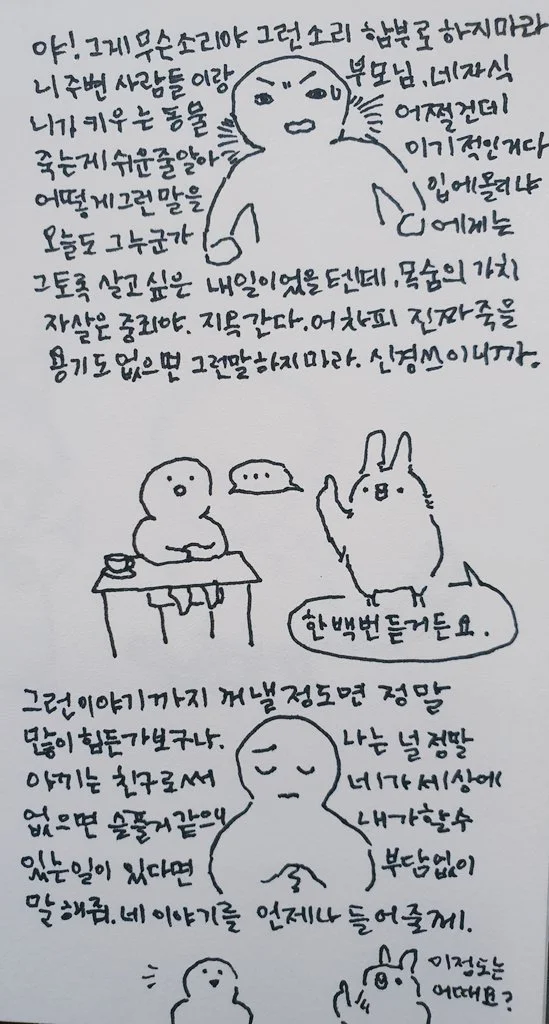 야! 그게 무슨소리야 그런소리 함부로 하지마라
니 주변 사람들 이랑 부모님. 네자식
니가 키우는 동물 어쩔건데
죽는게 쉬운줄알아? 이기적인거다
어떻게 그런 말을 입에올리냐
오늘도 그 누군가 에게는
그토록 살고싶은 내일이었을텐데. 목숨의 가치
자살은 중죄야. 지옥간다. 어차피 진짜 죽을
용기도 없으면 그런말하지마라. 신경쓰이니까.
...
한 백번 듣거든요.
그런이야기까지 꺼낼정도면 정말
많이 힘든가보구나. 나는 널 정말
아끼는 친구로써 네가 세상에
없으면 슬플거같은데 내가할수
있는일이 있다면 부담없이
말해줘. 네 이야기를 언제나 들어줄게.
이정도는
어때요?